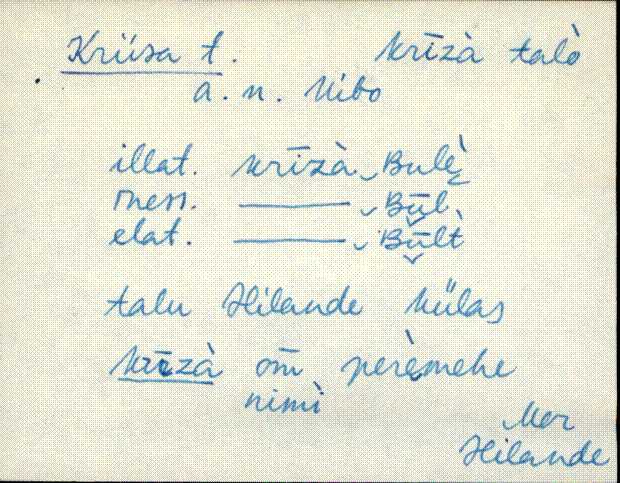 Kriisa t. krīzà talò
a. n. Nibo
illat. krīzà Bulè
iness. ——— Būl.
elat. ——— Būlt
talu Hilande külas
krīzà om̄ perèmehe
nimì
Mer
Hilande